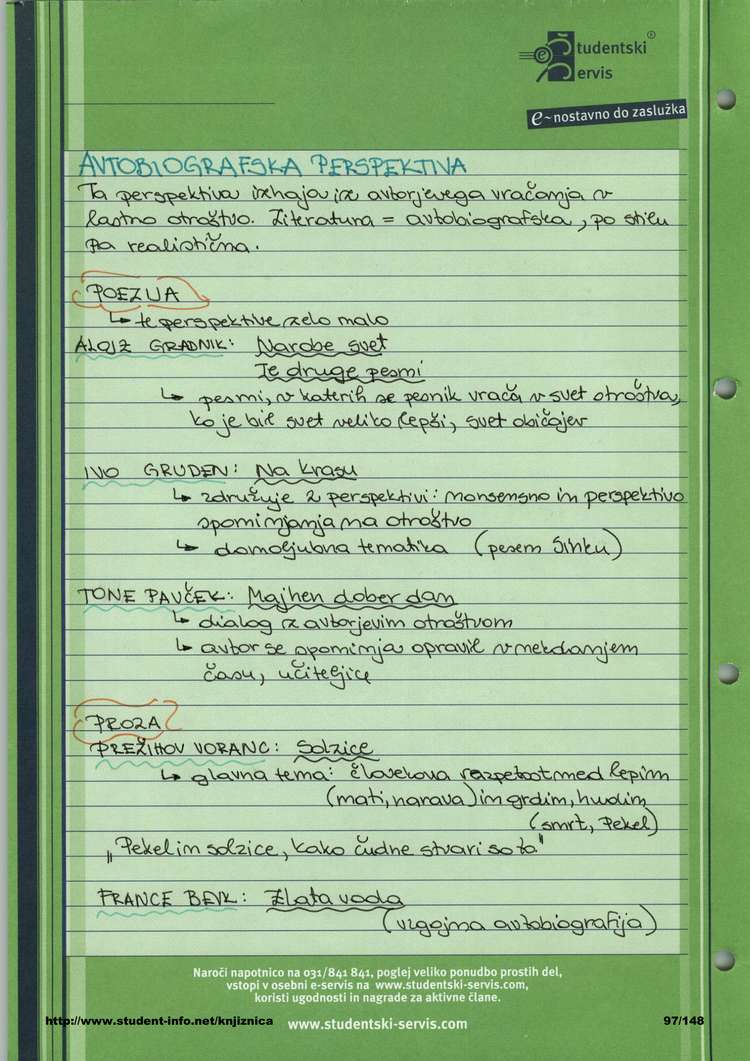 Študentski®
Servis
e~nostavno do zaslužka
AVTOBIOGRAFSKA PERSPEKTIVA
Ta perspektiva izhaja iz avtorjevega vračanja v
lastno otroštvo. Literatura = avtobiografska, po stilu
pa realistična.
POEZIJA
↳ te perspektive zelo malo
ALOJZ GRADNIK: Narobe svet
Te druge pesmi
↳ pesmi, v katerih se pesnik vrača v svet otroštva,
ko je bil svet veliko lepši, svet običajev
IVO GRUDEN: Na krasu
↳ združuje 2 perspektivi: nonsensno in perspektivo
spominjanja na otroštvo
↳ domoljubna tematika (pesem Sinku)
TONE PAVČEK: Majhen dober dan
↳ dialog z avtorjevim otroštvom
↳ avtor se spominja opravil v nekdanjem
času, učiteljice
PROZA
PREŽIHOV VORANC: Solzice
↳ glavna tema: človekova razpetost med lepim
(mati, narava) in grdim, hudim
(smrt, Pekel)
"Pekel in solzice, kako čudne stvari so to"
FRANCE BEVK: Zlata voda
(vzgojna avtobiografija)
Naroči napotnico na 031/841 841, poglej veliko ponudbo prostih del,
vstopi v osebni e-servis na www.studentski-servis.com,
koristi ugodnosti in nagrade za aktivne člane.
http://www.student-info.net/knjiznica www.studentski-servis.com 97/148